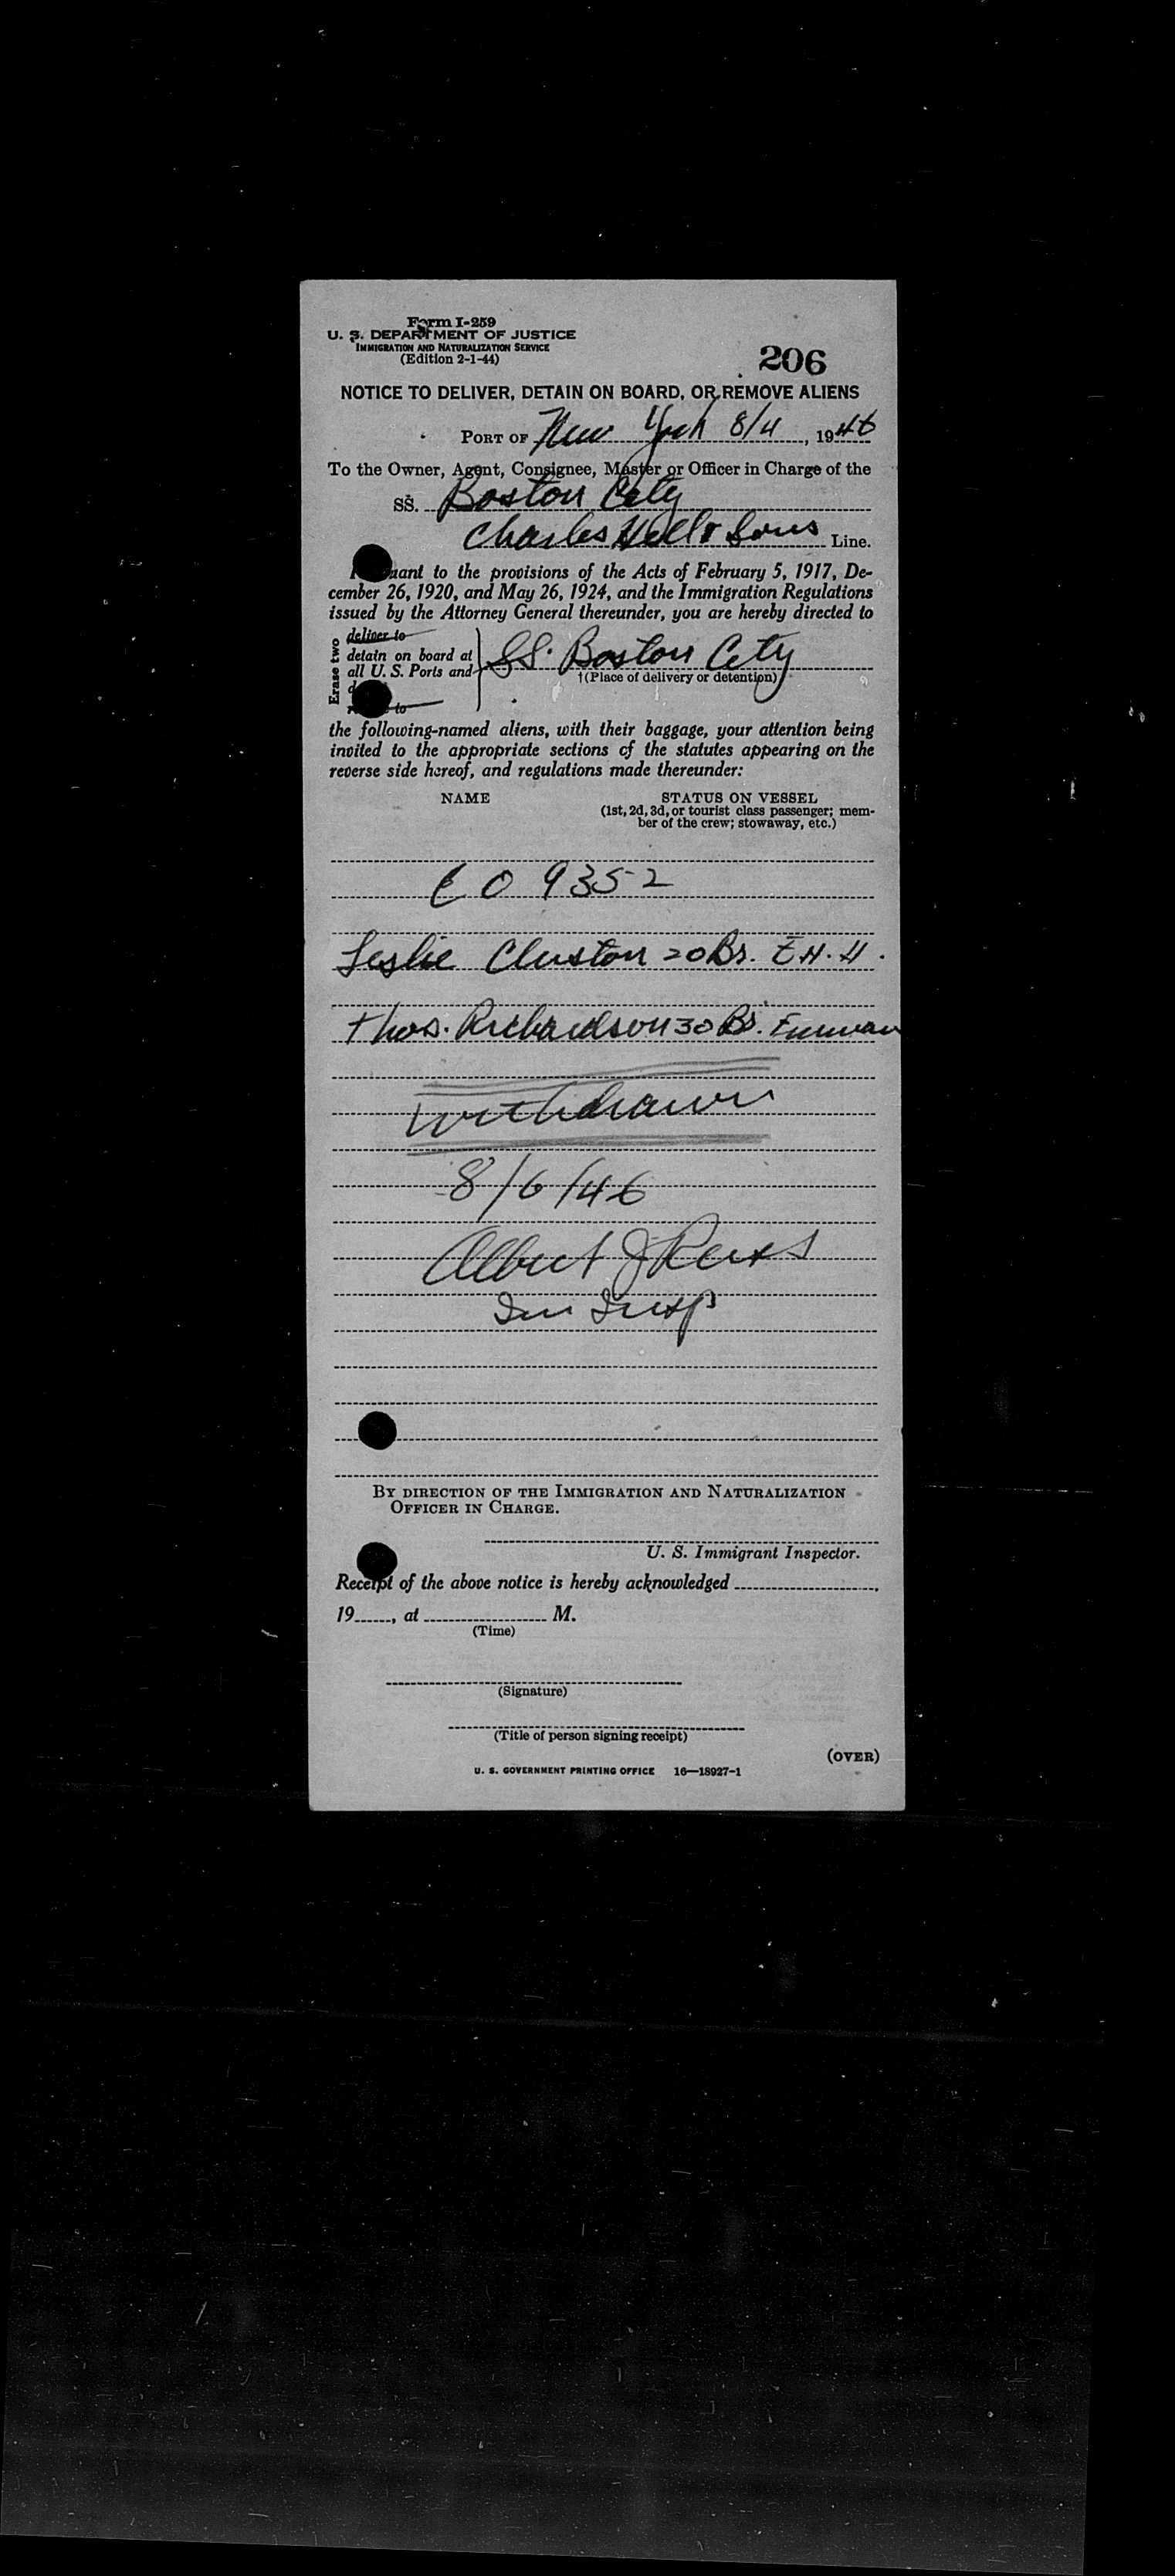 Form I-259
U. S. DEPARTMENT OF JUSTICE
IMMIGRATION AND NATURALIZATION SERVICE
(Edition 2-1-44)
206
NOTICE TO DELIVER, DETAIN ON BOARD, OR REMOVE ALIENS
PORT OF New York 8/4, 1946
To the Owner, Agent, Consignee, Master or Officer in Charge of the
SS. Boston City
Charles Hill & Sons Line.
uant to the provisions of the Acts of February 5, 1917, De-
cember 26, 1920, and May 26, 1924, and the Immigration Regulations
issued by the Attorney General thereunder, you are hereby directed to
Erase two
deliver to
detain on board at
all U. S. Ports and
SS. Boston City
†(Place of delivery or detention)
to
the following-named aliens, with their baggage, your attention being
invited to the appropriate sections of the statutes appearing on the
reverse side hereof, and regulations made thereunder:
NAME
STATUS ON VESSEL
(1st, 2d, 3d, or tourist class passenger; mem-
ber of the crew; stowaway, etc.)
9352
Leslie 20 Br.
Thos. Richardson 30 Br. Fireman
Withdrawn
8/6/46
Albert J
Im Insp
BY DIRECTION OF THE IMMIGRATION AND NATURALIZATION
OFFICER IN CHARGE.
U. S. Immigrant Inspector.
Receipt of the above notice is hereby acknowledged
19, at M.
(Time)
(Signature)
(Title of person signing receipt)
(OVER)
U. S. GOVERNMENT PRINTING OFFICE 16—18927-1